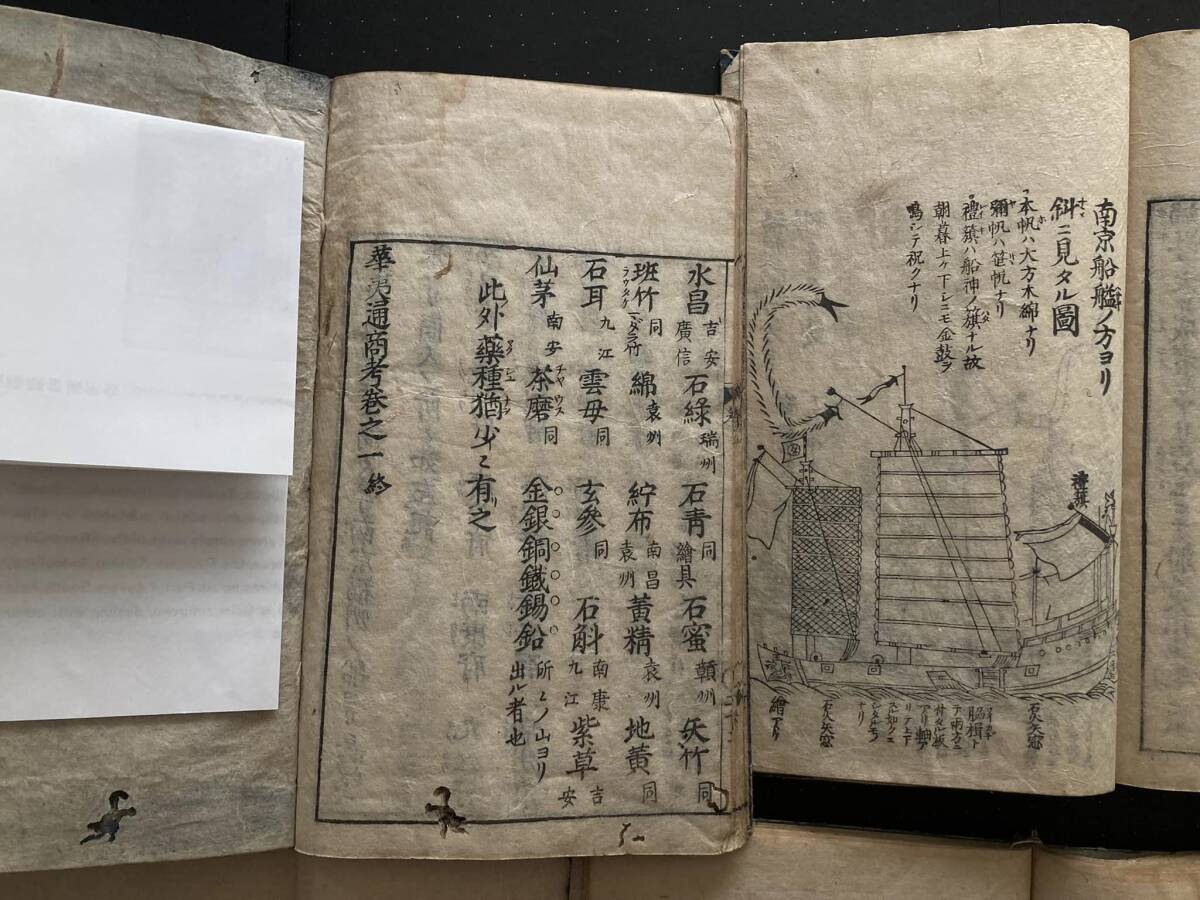 水昌 吉安 廣信 石緑 瑞州 石青 同 繪具 石蜜 贛州 矢竹 同
班竹 同 綿 袁州 紵布 南昌 袁州 黄精 袁州 地黄 同
石耳 九江 雲母 同 玄参 同 石斛 南康 九江 紫草 吉安
仙茅 南安 茶磨 チヤウス 同 金銀銅鐵錫鉛 所々ノ山ヨリ出ル者也
此外藥種猶少々有之
華夷通商考巻之一終
南京船艫ノ方ヨリ
斜ニ見タル圖
本帆ハ大方木綿ナリ
彌帆ハ笹帆ナリ
禮旗ハ船神ノ籏ナル故
朝暮上ケ下レニモ金鼓ヲ
鳴シテ祝クナリ
禮旗
石火矢窓
脇楫ト
テ兩方ニ
リテ上下
ナリ
石火矢窓